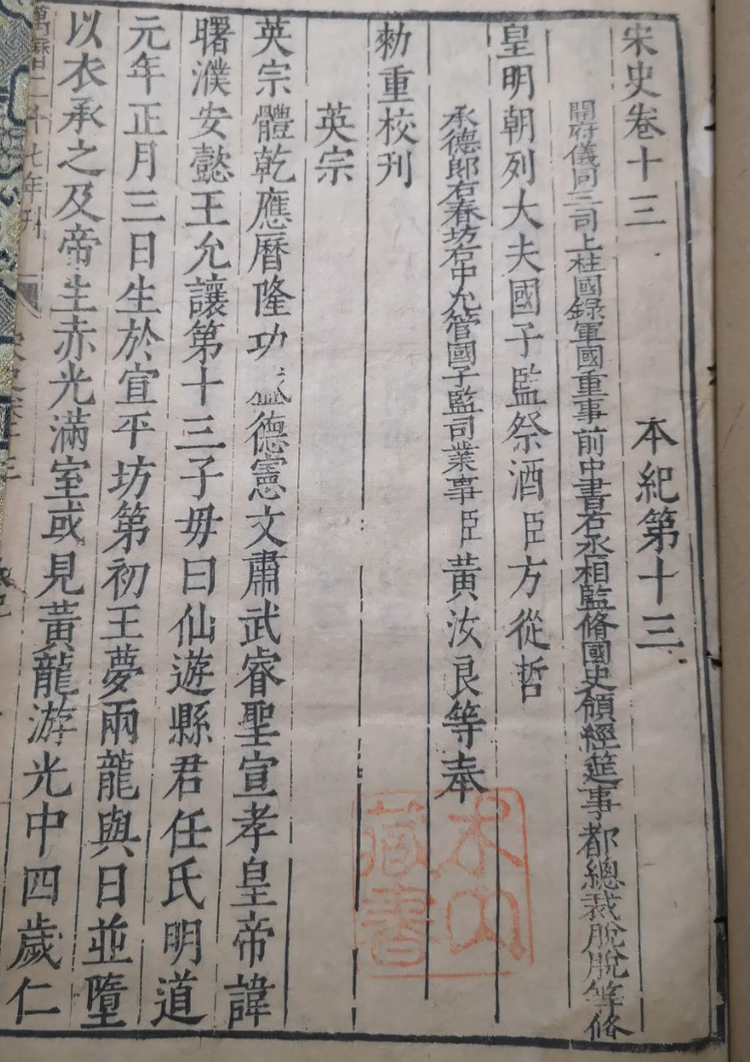 宋史卷十三　本紀第十三
開府儀同三司上柱國錄軍國重事前中書右丞相監脩國史領經筵事都總裁脫脫等脩
皇明朝列大夫國子監祭酒臣方從哲
承德郎右春坊右中允管國子監司業事臣黃汝良等奉
勑重校刊
英宗
英宗體乾應曆隆功盛德憲文肅武睿聖宣孝皇帝諱
曙濮安懿王允讓第十三子毋曰仙遊縣君任氏明道
元年正月三日生於宣平坊第初王夢兩龍與日並墮
以衣承之及帝生赤光滿室或見黃龍游光中四歲仁
萬曆二十七年刊
宋史卷十三
藏書